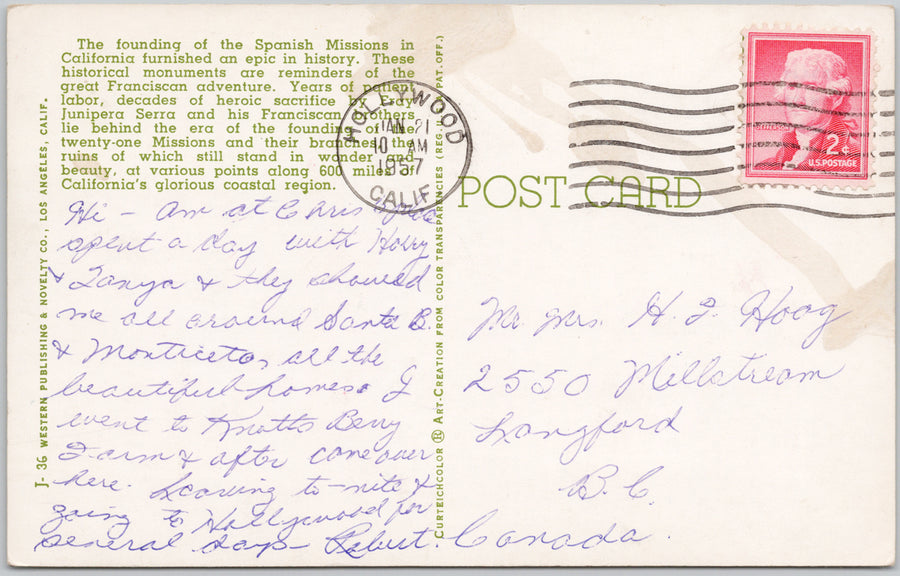 The founding of the Spanish Missions in
California furnished an epic in history. These
historical monuments are reminders of the
great Franciscan adventure. Years of patient
labor, decades of heroic sacrifice by
Junipera Serra and his Franciscan brothers
lie behind the era of the founding of the
twenty-one Missions and their brand of the
ruins of which still stand in wonder and
beauty, at various points along 600 miles of
California's glorious coastal region.
Hi - Am at Chris
spent a day with Harry
& Tanya & they showed
me all around Santa B.
& Monticeto, all the
beautiful homes. I
went to Knotts Berry
Farm & after came over
here. Leaving to-nite &
going to Hollywood for
several days - Robert.
J-36 WESTERN PUBLISHING & NOVELTY CO., LOS ANGELES, CALIF.
CURTEICHCOLOR ® ART-CREATION FROM COLOR TRANSPARENCIES (REG. U. PAT. OFF.)
HOLLYWOOD
JAN 21
10 AM
1957
CALIF
2¢
U.S. POSTAGE
POST CARD
Mr. Mrs. H. J. Hoag
2550 Millstream
Langford
B.C.
Canada.